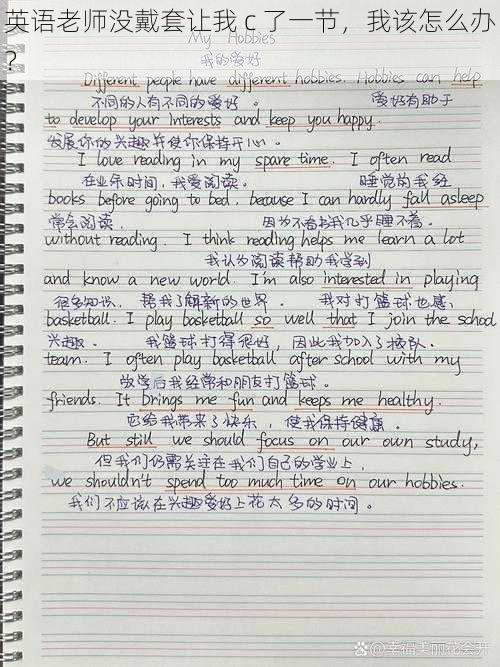 英语老师没戴套让我ｃ了一节，我该怎么办
?
My Hobbies
我的爱好
Different people have different hobbies. Hobbies can help
不同的人有不同的爱好。 爱好有助于
to develop your interests and keep you happy.
发展你的兴趣并使你保持开心。
I love reading in my spare time. I often read
在业余时间，我爱阅读。 睡觉前我经
books before going to bed, because I can hardly fall asleep
常会阅读， 因为不看书我几乎睡不着。
without reading. I think reading helps me learn a lot
我认为阅读帮助我学到
and know a new world. I'm also interested in playing
很多知识，帮我了解新的世界。 我对打篮球也感
basketball. I play basketball so well that I join the school
兴趣。 我篮球打得很好，因此我加入了校队。
team. I often play basketball after school with my
放学后我经常和朋友打篮球。
friends. It brings me fun and keeps me healthy.
它给我带来了快乐，使我保持健康。
But still we should focus on our own study,
但我们仍需关注在我们自己的学业上，
we shouldn't spend too much time on our hobbies.
我们不应该在兴趣爱好上花太多的时间。
幸福美丽花会开